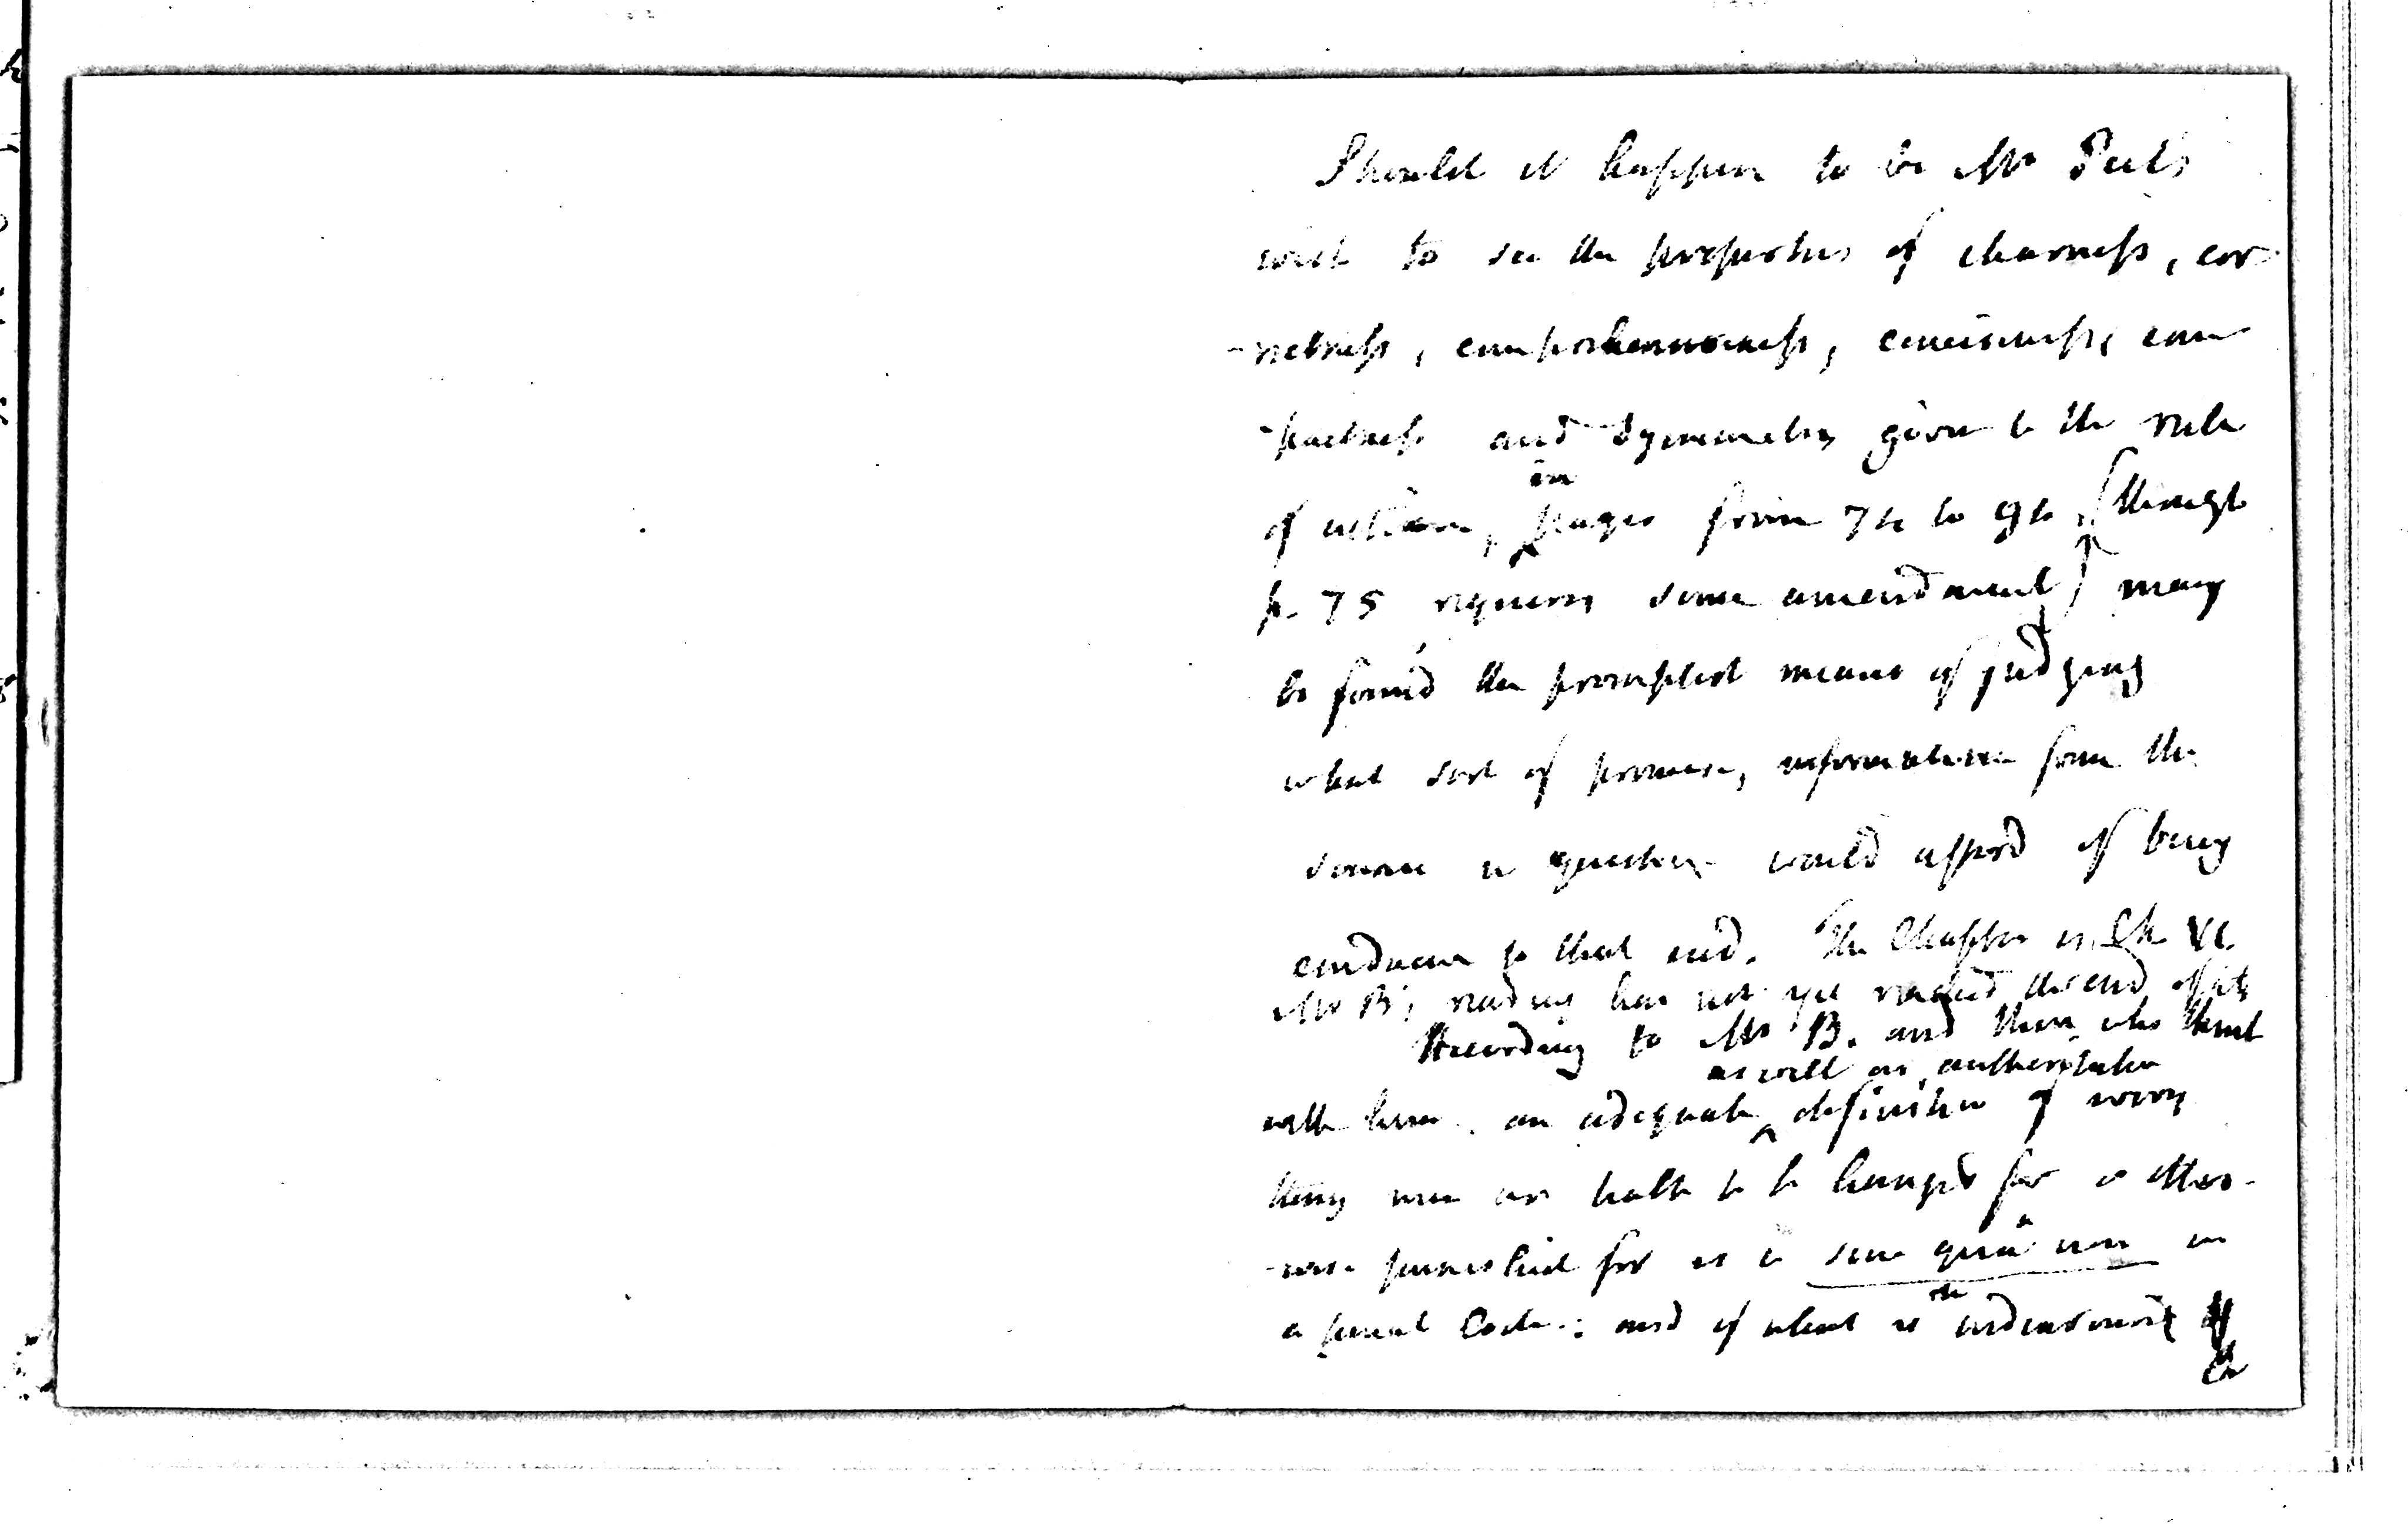 Should it happen to be Mr Peel's
wish to see the properties of clearness, cor-
-rectness, comprehensiveness, conciseness, com
-pactness and symmetry given to the rule
of action, in pages from 74 to 90 (though
p. 75 requires some amendment) may
be found the promptest means of judging
what sort of promise, information from the
source in question would afford of being
conducive to that end. The Chapter is Ch VI.
Mr B's reading has not yet reached the end of it
According to Mr B. and those who think
as well as authoritative
with him, an adequate definition of every
thing men are liable to be hanged for or other-
-wise punished for is a sine quâ non in
a penal Code: and of what is the endeavour